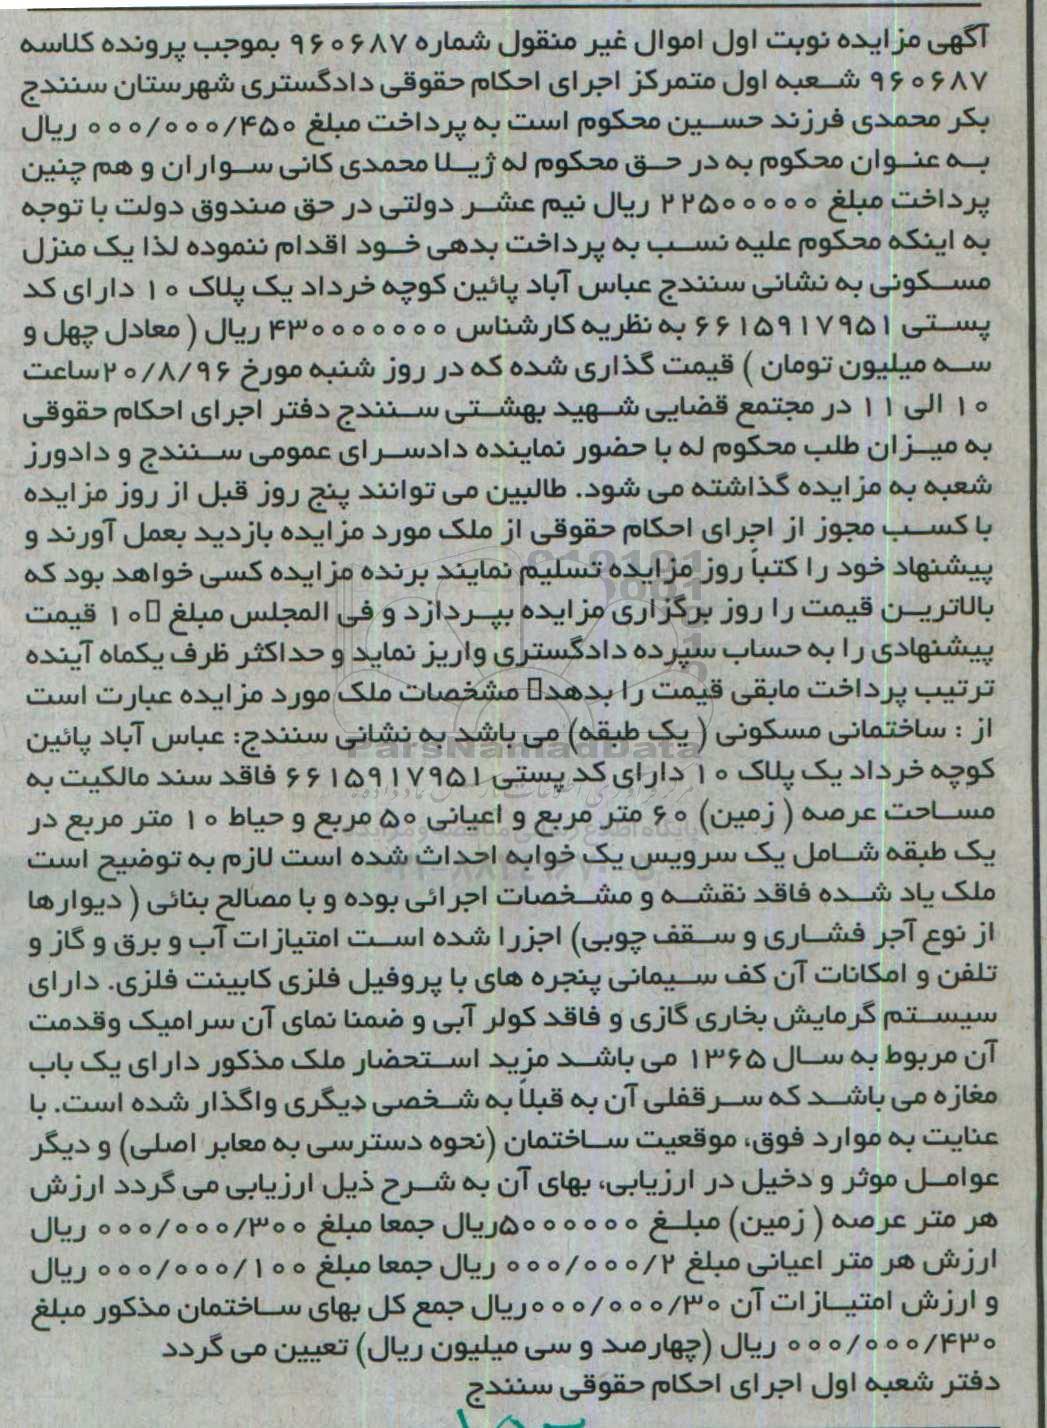 آگهی مزایده نوبت اول اموال غیر منقول شماره ۹۶۰۶۸۷ بموجب پرونده کلاسه
۹۶۰۶۸۷ شعبه اول متمرکز اجرای احکام حقوقی دادگستری شهرستان سنندج
بکر محمدی فرزند حسین محکوم است به پرداخت مبلغ ۰۰۰/۰۰۰/۴۵۰ ریال
به عنوان محکوم به در حق محکوم له ژیلا محمدی کانی سواران و هم چنین
پرداخت مبلغ ۲۲۵۰۰۰۰۰ ریال نیم عشر دولتی در حق صندوق دولت با توجه
به اینکه محکوم علیه نسب به پرداخت بدهی خود اقدام ننموده لذا یک منزل
مسکونی به نشانی سنندج عباس آباد پائین کوچه خرداد یک پلاک ۱۰ دارای کد
پستی ۶۶۱۵۹۱۷۹۵۱ به نظریه کارشناس ۴۳۰۰۰۰۰۰۰ ریال ( معادل چهل و
سه میلیون تومان ) قیمت گذاری شده که در روز شنبه مورخ ۲۰/۸/۹۶ساعت
۱۰ الی ۱۱ در مجتمع قضایی شهید بهشتی سنندج دفتر اجرای احکام حقوقی
به میزان طلب محکوم له با حضور نماینده دادسرای عمومی سنندج و دادورز
شعبه به مزایده گذاشته می شود. طالبین می توانند پنج روز قبل از روز مزایده
با کسب مجوز از اجرای احکام حقوقی از ملک مورد مزایده بازدید بعمل آورند و
پیشنهاد خود را کتباً روز مزایده تسلیم نمایند برنده مزایده کسی خواهد بود که
بالاترین قیمت را روز برگزاری مزایده بپردازد و فی المجلس مبلغ ۱۰ قیمت
پیشنهادی را به حساب سپرده دادگستری واریز نماید و حداکثر ظرف یکماه آینده
ترتیب پرداخت مابقی قیمت را بدهد مشخصات ملک مورد مزایده عبارت است
از : ساختمانی مسکونی ( یک طبقه) می باشد به نشانی سنندج: عباس آباد پائین
ParsNamadData
کوچه خرداد یک پلاک ۱۰ دارای کد پستی ۶۶۱۵۹۱۷۹۵۱ فاقد سند مالکیت به
مساحت عرصه ( زمین) ۶۰ متر مربع و اعیانی ۵۰ مربع و حیاط ۱۰ متر مربع در
یک طبقه شامل یک سرویس یک خوابه احداث شده است لازم به توضیح است
ملک یاد شده فاقد نقشه و مشخصات اجرائی بوده و با مصالح بنائی ( دیوارها
از نوع آجر فشاری و سقف چوبی) اجزرا شده است امتیازات آب و برق و گاز و
تلفن و امکانات آن کف سیمانی پنجره های با پروفیل فلزی کابینت فلزی. دارای
سیستم گرمایش بخاری گازی و فاقد کولر آبی و ضمنا نمای آن سرامیک وقدمت
آن مربوط به سال ۱۳۶۵ می باشد مزید استحضار ملک مذکور دارای یک باب
مغازه می باشد که سرقفلی آن به قبلاً به شخصی دیگری واگذار شده است. با
عنایت به موارد فوق، موقعیت ساختمان (نحوه دسترسی به معابر اصلی) و دیگر
عوامل موثر و دخیل در ارزیابی، بهای آن به شرح ذیل ارزیابی می گردد ارزش
هر متر عرصه ( زمین) مبلغ ۵۰۰۰۰۰۰ریال جمعا مبلغ ۰۰۰/۰۰۰/۳۰۰ ریال
ارزش هر متر اعیانی مبلغ ۰۰۰/۰۰۰/۲ ریال جمعا مبلغ ۰۰۰/۰۰۰/۱۰۰ ریال
و ارزش امتیازات آن ۰۰۰/۰۰۰/۳۰ریال جمع کل بهای ساختمان مذکور مبلغ
۰۰۰/۰۰۰/۴۳۰ ریال (چهارصد و سی میلیون ریال) تعیین می گردد
دفتر شعبه اول اجرای احکام حقوقی سنندج